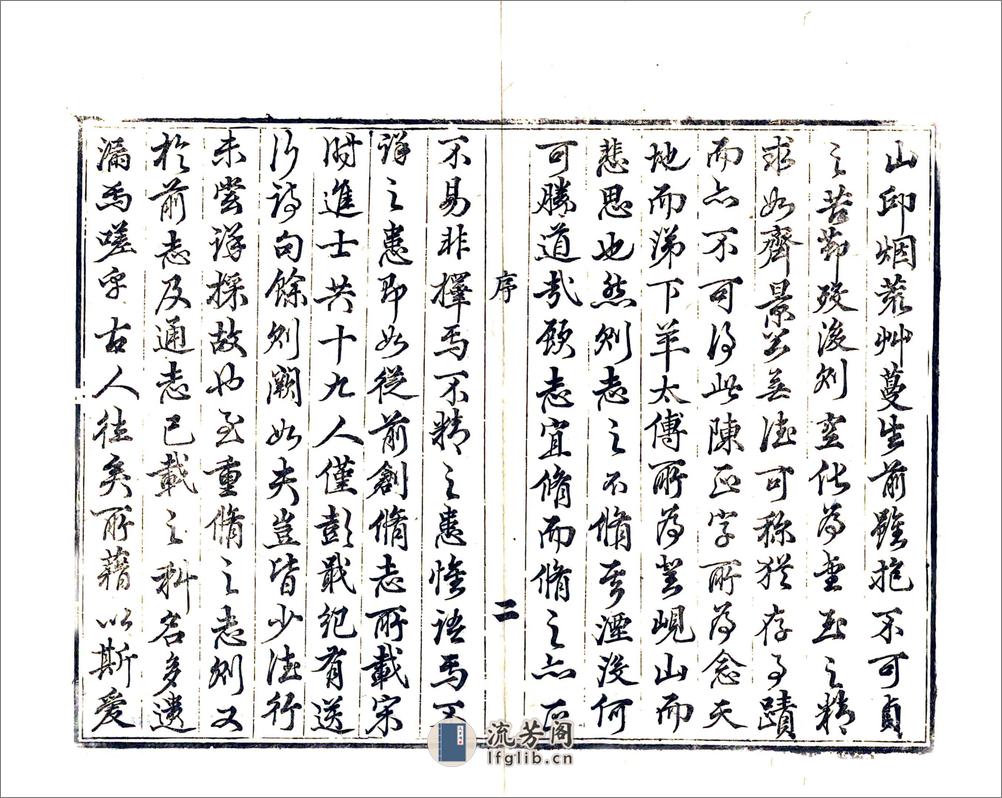 山邱烟荒艸蔓生前雖抱不可貞
之苦節歿後則空化為聖玉之精
求如齊景公無德可稱猶存馬蹟
而亦不可得此陳正字所為念天
地而涕下羊太傅所為登峴山而
悲思也然則志之不脩其湮没何
可勝道哉顧志宜脩而脩之亦正
序 二
不易非擇焉不精之患惟語焉不
詳之患即如從前創脩志所載宋
時進士共十九人僅彭戢紀有送
行詩句餘則闕如夫豈皆少德行
未嘗詳採故也至重脩之志則又
於前志及通志已載之科名多遺
漏焉嗟乎古人往矣所藉以斯愛
流芳阁
lfglib.cn